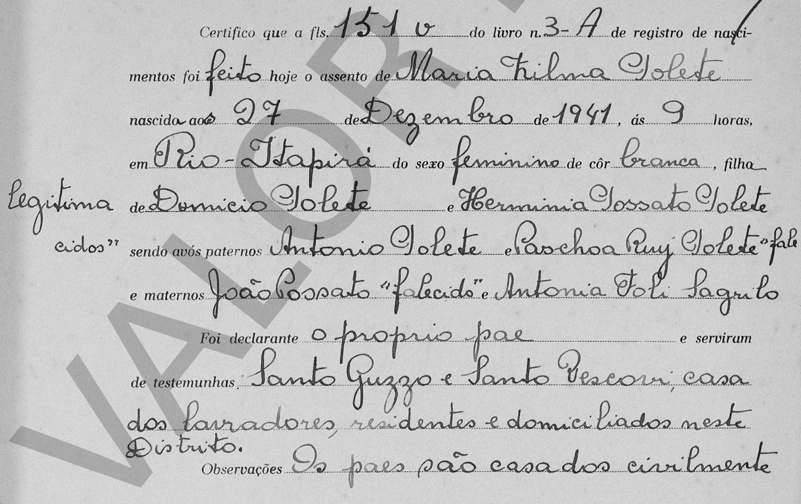 Certifico que a fls. 151 v do livro n. 3-A de registro de nasci-
mentos foi feito hoje o assento de Maria Zilma Polete
nascida aos 27 de Dezembro de 1941, ás 9 horas,
em Rio-Itapirá do sexo feminino de côr branca, filha
legitima de Domicio Polete e Herminia Possato Polete
sendo avós paternos Antonio Polete e Paschoa Ruy Polete "fale
cidos"
e maternos João Possato "falecido" e Antonia Foli Sagrilo
Foi declarante o proprio pae e serviram
de testemunhas, Santo Guzzo e Santo Pescovi, casa
dos lavradores, residentes e domiciliados neste
Districto.
Observações Os paes são casados civilmente
VALOR